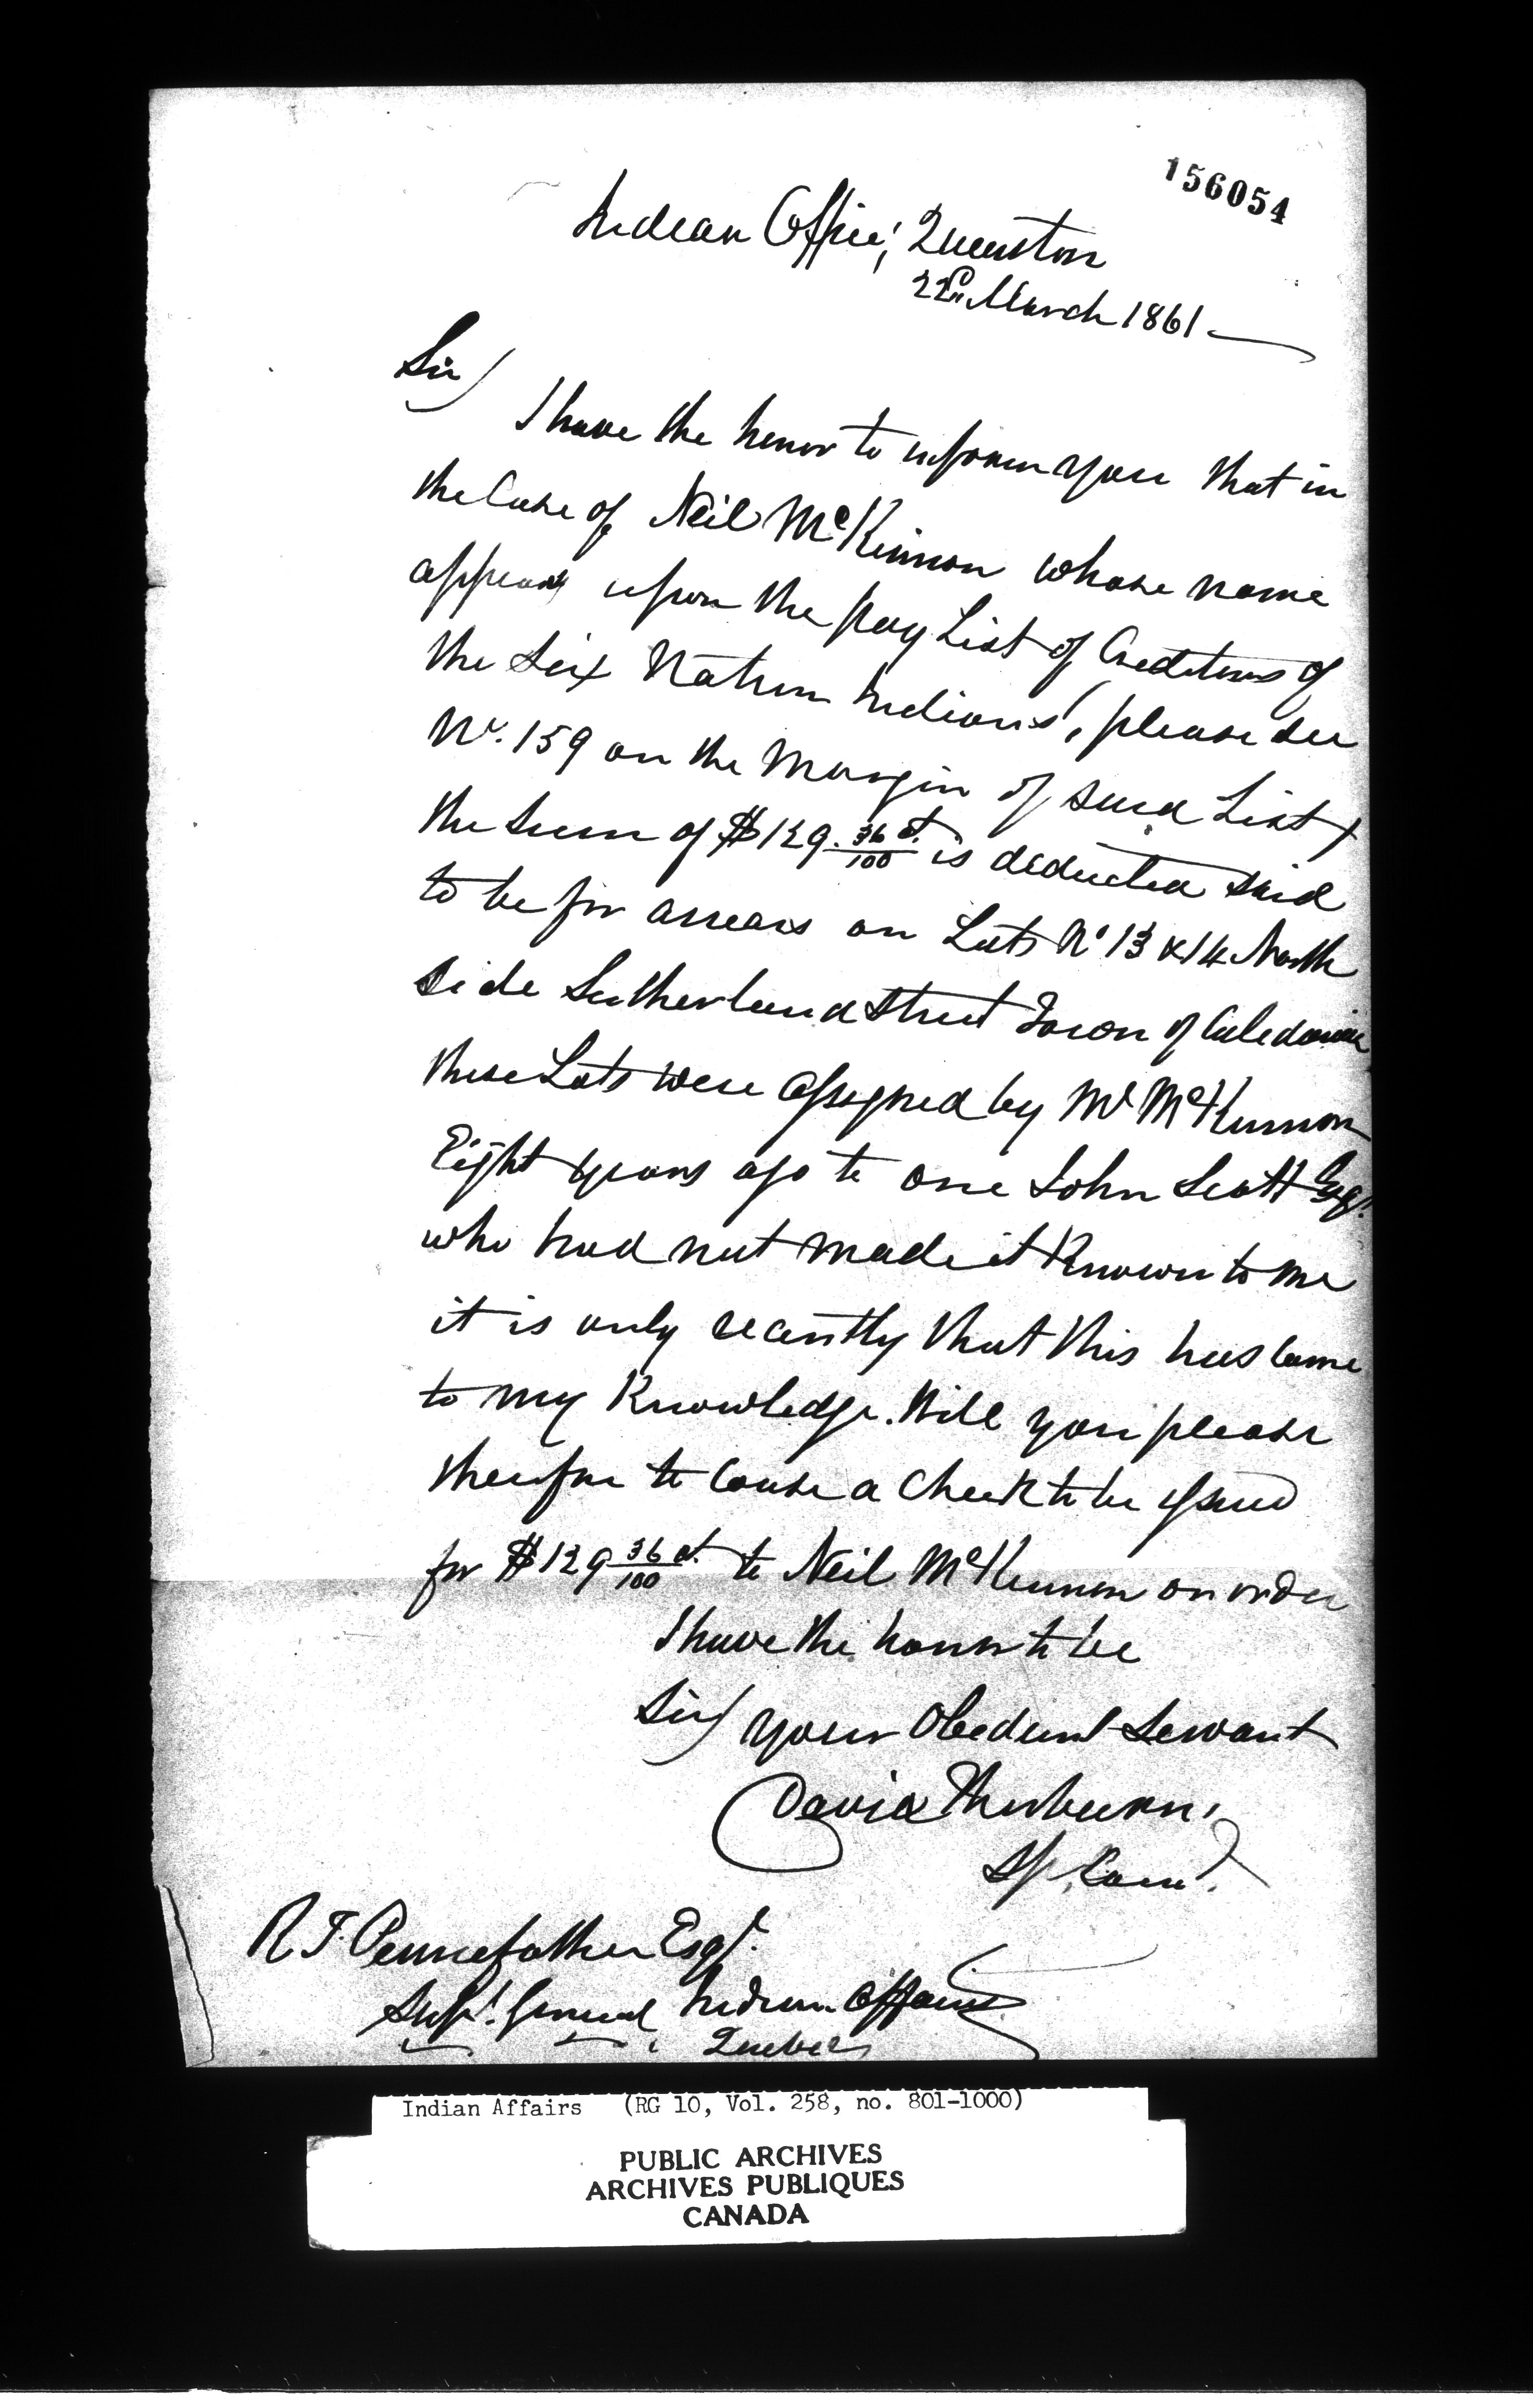 156054
Indian Office, Queenston
22nd March 1861
Sir/
I have the honor to inform you that in
the Case of Neil McKinnon whose name
appears upon the pay List of Creditors of
the Six Nation Indians, please see
No. 159 on the Margin of said List,
the sum of $129. 36/100 ct. is deducted said
to be for arrears on Lots No 13 & 14 North
side Sutherland Street Town of Caledonia
these Lots were assigned by Mr McKinnon
Eight years ago to one John Scott Esqr.
who had not made it Known to me
it is only recently that this has come
to my Knowledge. Will you please
therefore to Cause a Check to be issued
for $129 36/100 ct. to Neil McKinnon or order
I have the honor to be
Sir/ your Obedient Servant
David Thorburn,
Sp. Comr.
R. T. Pennefather Esqr.
Supt. General Indian Affairs
Quebec
Indian Affairs (RG 10, Vol. 258, no. 801-1000)
PUBLIC ARCHIVES
ARCHIVES PUBLIQUES
CANADA